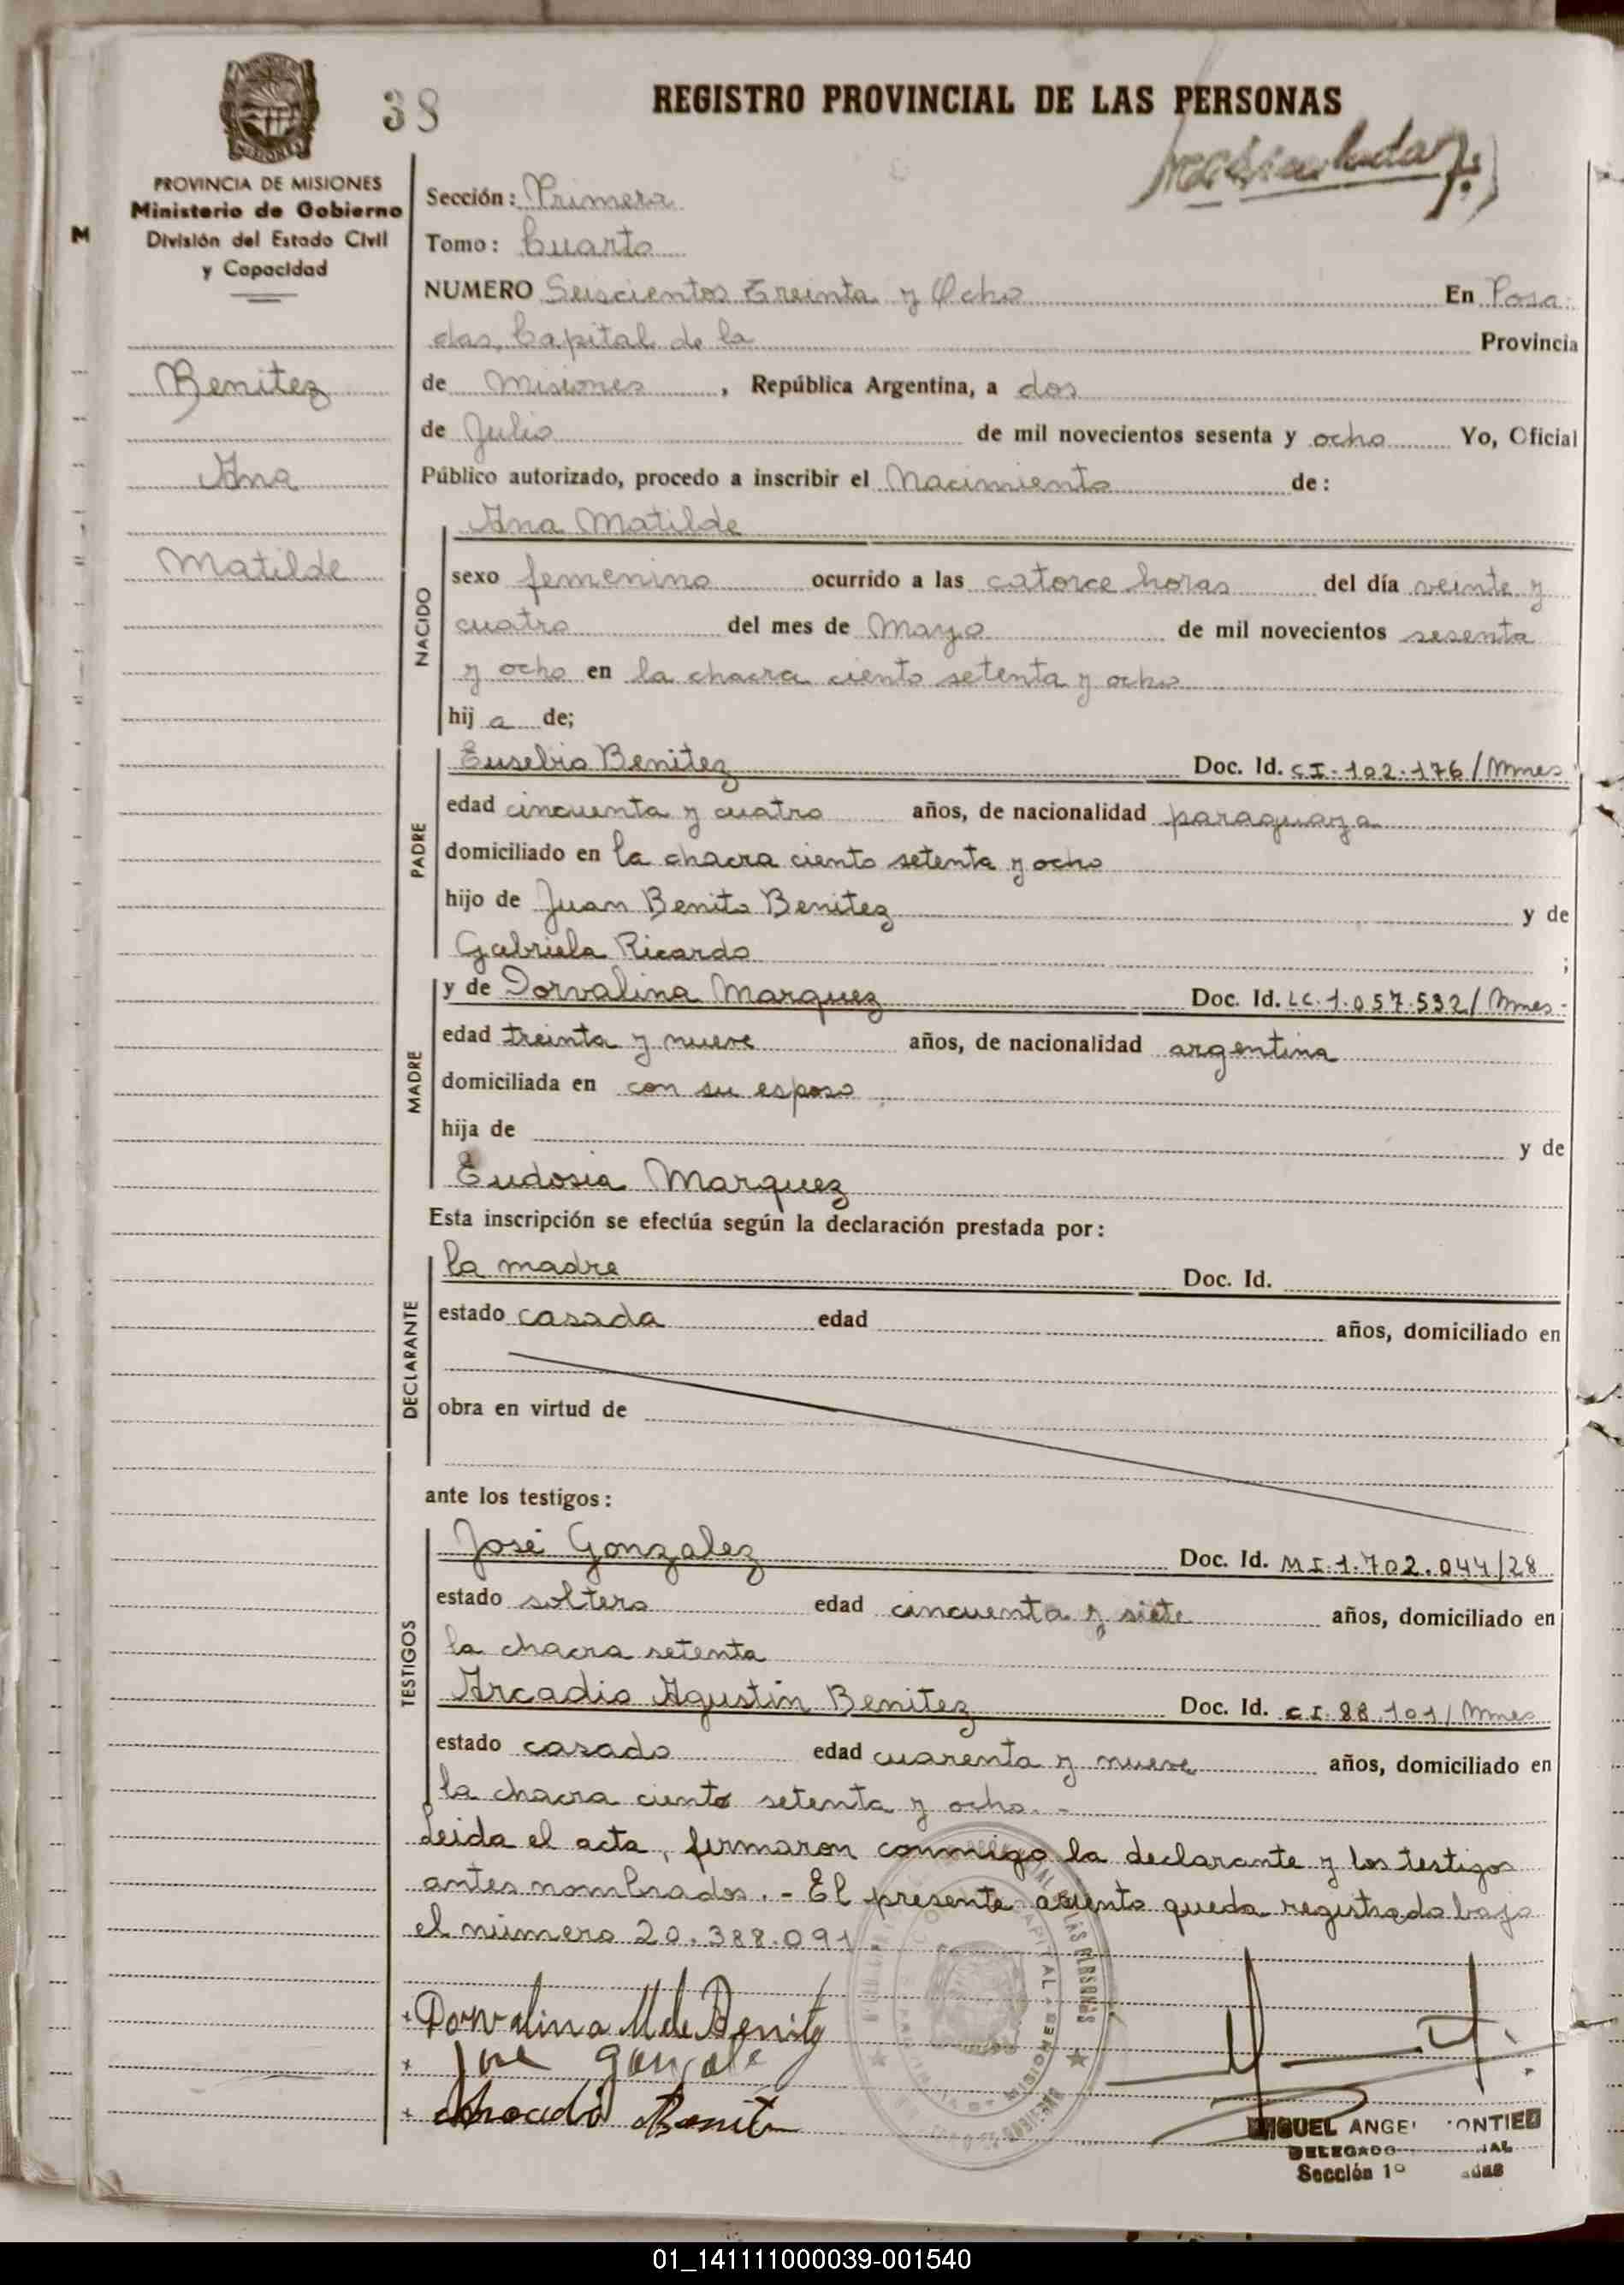 38
REGISTRO PROVINCIAL DE LAS PERSONAS
MISIONES
PROVINCIA DE MISIONES
Ministerio de Gobierno
División del Estado Civil
y Capacidad
M
Benitez
Ana
Matilde
Sección: Primera
Tomo: Cuarto
NUMERO Seiscientos Treinta y Ocho En Posa
das, Capital de la Provincia
de Misiones, República Argentina, a dos
de Julio de mil novecientos sesenta y ocho Yo, Oficial
Público autorizado, procedo a inscribir el Nacimiento de:
NACIDO
Ana Matilde
sexo femenino ocurrido a las catorce horas del día veinte y
cuatro del mes de Mayo de mil novecientos sesenta
y ocho en la chacra ciento setenta y ocho
hij a de;
PADRE
Eusebio Benitez Doc. Id. CI-102.176/Mnes
edad cincuenta y cuatro años, de nacionalidad paraguaya
domiciliado en la chacra ciento setenta y ocho
hijo de Juan Benito Benitez y de
Gabriela Ricardo ;
MADRE
y de Dorvalina Marquez Doc. Id. LC.1.057.532/Mnes-
edad treinta y nueve años, de nacionalidad argentina
domiciliada en con su esposo
hija de y de
Eudosia Marquez
Esta inscripción se efectúa según la declaración prestada por:
DECLARANTE
la madre Doc. Id.
estado casada edad años, domiciliado en
obra en virtud de
ante los testigos:
TESTIGOS
José Gonzalez Doc. Id. MI.1.702.044/28
estado soltero edad cincuenta y siete años, domiciliado en
la chacra setenta
Arcadio Agustin Benitez Doc. Id. CI.88.101/Mnes
estado casado edad cuarenta y nueve años, domiciliado en
la chacra ciento setenta y ocho.-
Leida el acta, firmaron conmigo la declarante y los testigos
antes nombrados.- El presente asiento queda registrado bajo
el número 20.388.091
Dorvalina M de Benitz
Jose Gonzale
Arcadio Benit
MIGUEL ANGEL
DELEGADO
Sección 1º
01_141111000039-001540